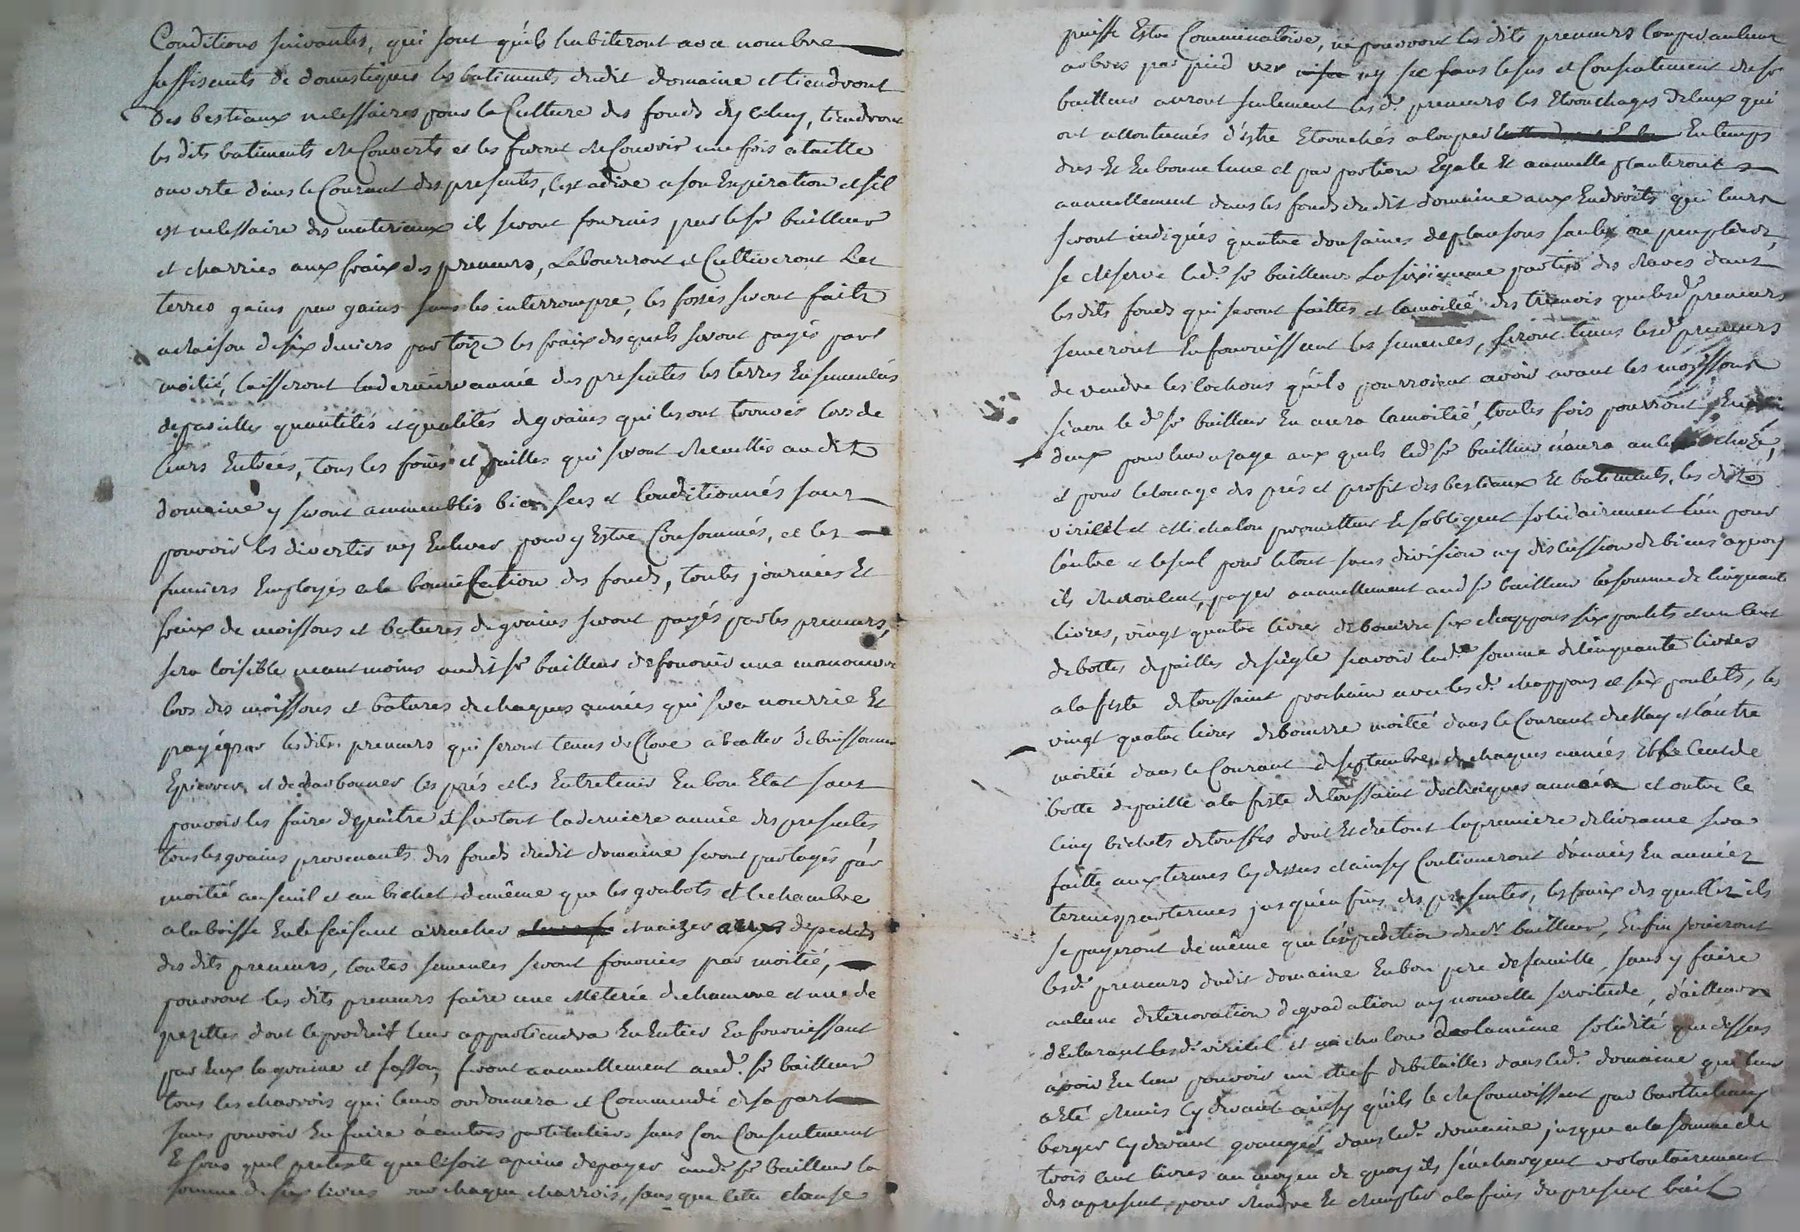 Conditions suivantes, qui sont quils habiteront avec nombre
suffisents de domestiques les batiments dudit domaine et tiendront
des bestiaux necessaires pour la Culture des fonds dycelluy, tiendront
les dits batiments de Couverts et les feront deCouvrir une fois ataille
ouverte dans leCourant des presentes, cest adire a son Expiration et sil
est necessaire des materiaux ils seront fournis par le sr bailleur
et charriés aux fraix des preneurs, Laboureront et Cultiveront Les
terres gains par gains sans les interrompre, les fossés seront faits
araison de six deniers par toize les fraix desquels seront payés par
moitié, laisseront laderniere année des presentes les terres Ensemencées
depareilles quantités et qualités de grains quils ont trouvés lors de
leurs Entrées, tous les foins et pailles qui seront recueillis audit
domaine y seront ammeublis bien secs et Conditionnés sans
pouvoir les divertir ny Enlever pour y Estre Consommés, et les
fumiers Employés ala bonnification des fonds, toutes journées Et
fraix de moissons et batures de grains seront payés par les preneurs,
sera loisible neantmoins audit sr bailleur defournir une manoeuvre
lors des moissons et batures de chaques années qui sera nourrie Et
payé par lesdits preneurs qui seront tenus de Clore
Epierrer et dedarbonner les prés et les Entretenir En bon Etat sans
pouvoir les faire depaitre et surtout laderniere année des presentes
tous les grains provenants des fonds dudit domaine seront partagés par
moitié au seuil et au bichet demême que les et le chanvre
ala boisse Enle faisant arracher et naizer aux depends
des dits preneurs, toutes semences seront fournies par moitié,
pouvront les dits preneurs faire une Meterée de chanvre et une de
pezettes dont le produit leur appartiendra En Entier En fournissant
par Eux la graine et fasson, feront annuellement aud. sr bailleur
tous les charrois qui leurs ordonnera et Commendé desapart
sans pouvoir En faire a dautres particuliers sans son Consentement
Et sous quel pretexte que cesoit apeine depayer aud. sr bailleur la
somme de six livres par chaque charrois, sans que cette clause
puisse Estre Comminatoire, ne pouvront les dits preneurs Couper aucuns
arbres par pied ny sec sans lesus et Consentement dusr
bailleur auront seulement lesd. preneurs les Etronchages deceux qui
ont accoutumés d'estre Etronchés a couper En temps
dus Et En bonne lune et par portion Egale Et annuelle planteront
annuellement dans les fonds dudit domaine aux Endroits qui leurs
seront indiqués quatre douzaines deplansons saule ou peuplier,
se reserve led. sr bailleur La sixieme partie des raves dans
les dits fonds qui seront faittes et lamoitié des tremois que lesd. preneurs
semeront En fournissant les semences, seront tenus lesd. preneurs
de vendre les cochons quils pourroient avoir avant les moissons
sinon le d. sr bailleur En aura lamoitié, toutes fois pouvront
deux pour leur uzage aux quels led. sr bailleur n'aura aucune choze,
et pour le louage des prés et profit des bestiaux Et batiments, les dits
viricel et Michalon promettent Et sobligent solidairement L'un pour
l'autre et leseul pour letout sans division ny discussion de biens aquoy
ils renoncent, payer annuellement aud. sr bailleur la somme de Cinquante
livres, vingt quatre livres de beurre six chappons six poulets et un Cent
de bottes de pailles de seigle savoir lad. somme de Cinquante livres
ala feste de toussaint prochain avec lesd. chappons et six poulets, les
vingt quatre livres de beurre moitié dans le Courant de May et l'autre
moitié dans le Courant de septembre de chaques années Et le Cent de
botte de paille ala feste de toussaint de chaques années et outre ce
cinq bichets de truffes dont Et du tout la premiere delivrance sera
faitte aux termes cy dessus et ainsy Continueront d'années En années
termes par termes jusqu'en fins des presentes, les fraix des quelles ils
se payeront de même que l'expedition dud. bailleur, Enfin jouiront
lesd. preneurs dudit domaine En bon pere defamille, sans y faire
aucune deterioration degradation ny nouvelle servitude, d'ailleurs
declarant lesd. viricel et michalon dela même solidité que dessus
avoir En leur pouvoir un chef de bétaille dans led. domaine qui leur
a Eté remis cy devant ainsy quils le reConnoissent par barthelemy
berger cy devant granger dans led. domaine, jusques a la somme de
trois cent livres au moyen de quoy ils se chargent volontairement
des apresent pour rendre Et remplir ala fin du present bail